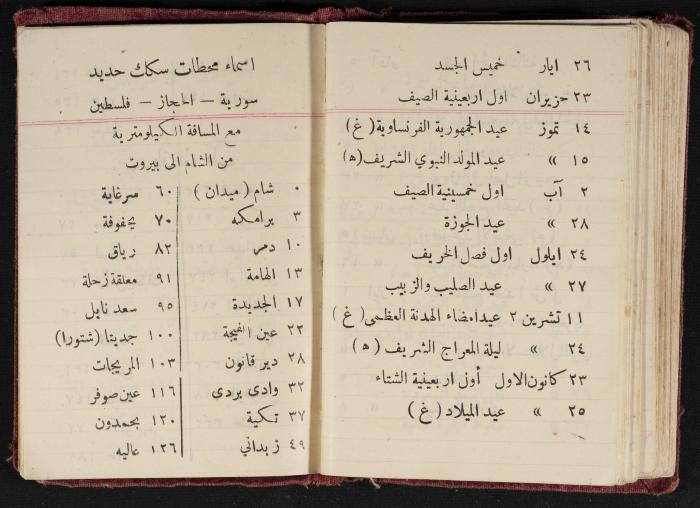 ٢٦ ايار خميس الجسد
٢٣ حزيران اول اربعينية الصيف
١٤ تموز عيد الجمهورية الفرنساوية (غ)
١٥ » عيد المولد النبوي الشريف (ه)
٢ آب اول خمسينية الصيف
٢٨ » عيد الجوزة
٢٤ ايلول اول فصل الخريف
٢٧ » عيد الصليب والزبيب
١١ تشرين ٢ عيد امضاء الهدنة العظمى (غ)
٢٤ » ليلة المعراج الشريف (ه)
٢٣ كانون الاول أول اربعينية الشتاء
٢٥ » عيد الميلاد (غ)
اسماء محطات سكك حديد
سورية — الحجاز — فلسطين
مع المسافة الكيلومترية
من الشام الى بيروت
٠ شام (ميدان)
٣ برامكه
١٠ دمر
١٣ الهامة
١٧ الجديدة
٢٢ عين الفيجة
٢٨ دير قانون
٣٢ وادى بردى
٣٧ تكية
٤٩ زبداني
٦٠ سرغاية
٧٠ يحفوفة
٨٢ رياق
٩١ معلقة زحلة
٩٥ سعد نايل
١٠٠ جديتا (شتورا)
١٠٣ المريجات
١١٦ عين صوفر
١٢٠ بحمدون
١٢٦ عاليه